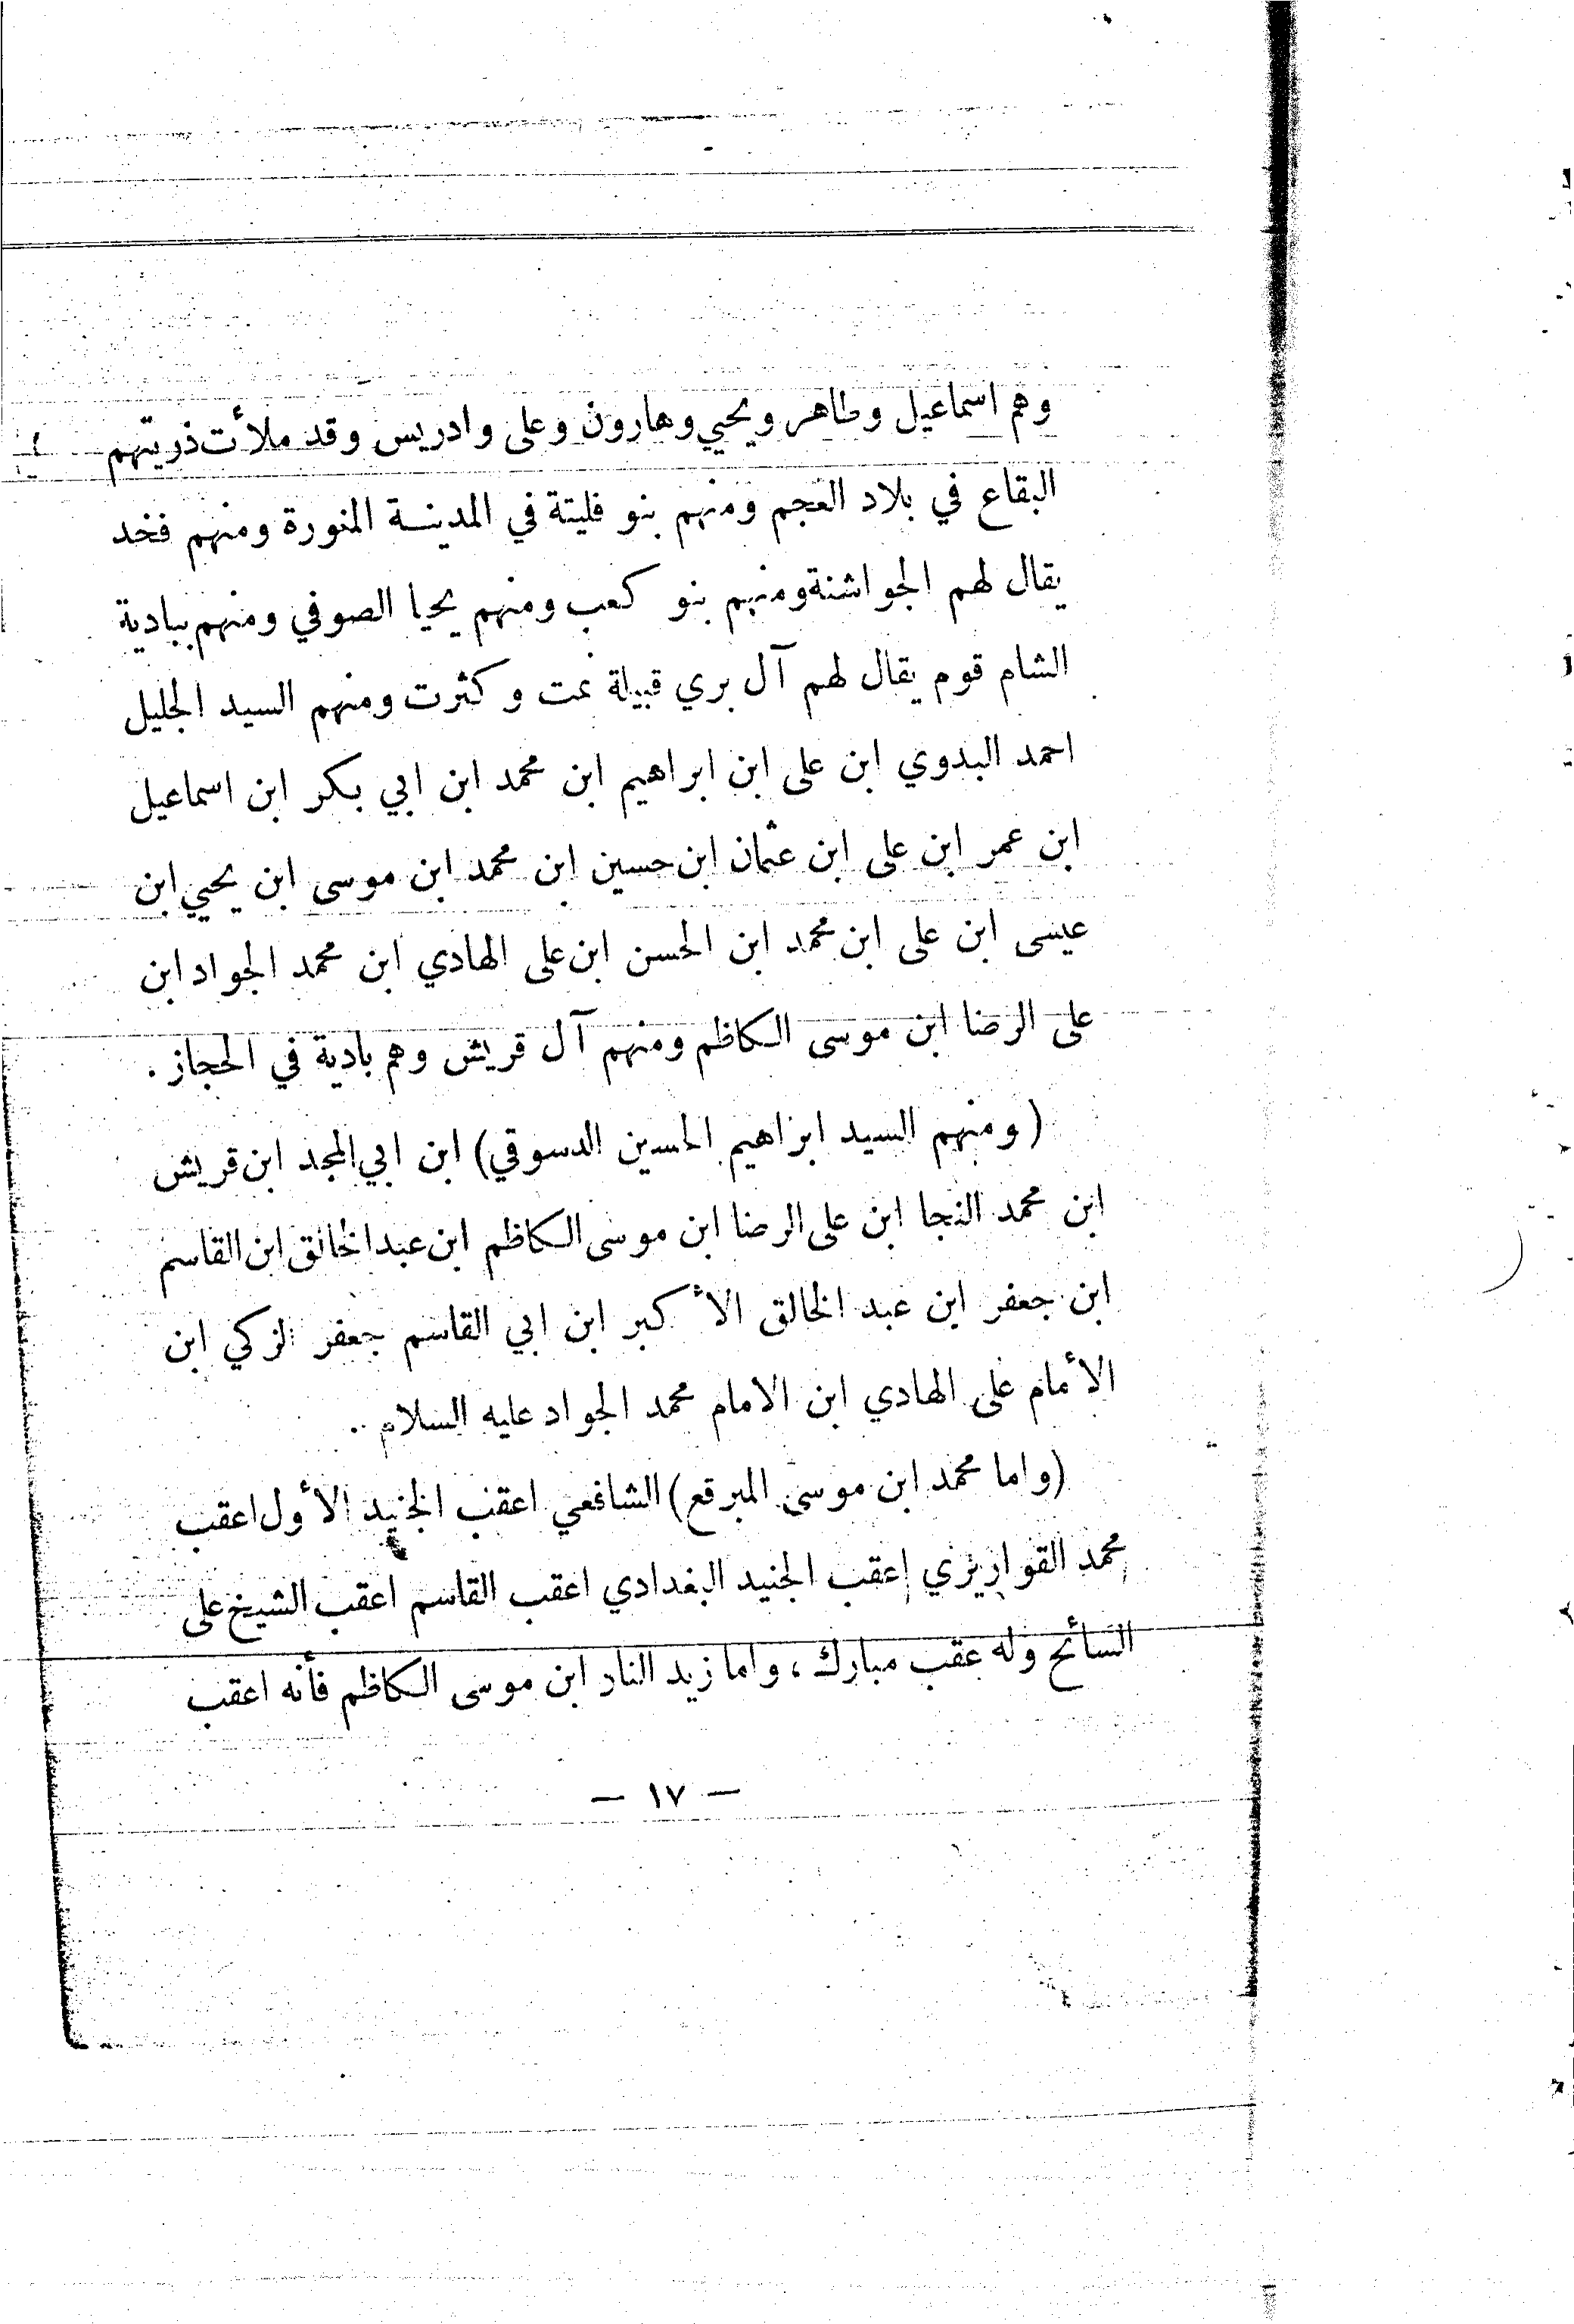 وهم اسماعيل وطاهر ويحيي وهارون وعلى وادريس وقد ملأت ذريتهم
البقاع في بلاد العجم ومنهم بنو فليتة في المدينة المنورة ومنهم فخد
يقال لهم الجواشنة ومنهم بنو كعب ومنهم يحيا الصوفي ومنهم ببادية
الشام قوم يقال لهم آل بري قبيلة نمت وكثرت ومنهم السيد الجليل
احمد البدوي ابن على ابن ابراهيم ابن محمد ابن ابي بكر ابن اسماعيل
ابن عمر ابن على ابن عثمان ابن حسين ابن محمد ابن موسى ابن يحيي ابن
عيسى ابن على ابن محمد ابن الحسن ابن على الهادي ابن محمد الجواد ابن
على الرضا ابن موسى الكاظم ومنهم آل قريش وهم بادية في الحجاز .
( ومنهم السيد ابراهيم الحسين الدسوقي) ابن ابي المجد ابن قريش
ابن محمد النجا ابن على الرضا ابن موسى الكاظم ابن عبدالخالق ابن القاسم
ابن جعفر ابن عبد الخالق الأكبر ابن ابي القاسم جعفر الزكي ابن
الأمام على الهادي ابن الامام محمد الجواد عليه السلام ..
(واما محمد ابن موسى المبرقع) الشافعي اعقب الجنيد الأول اعقب
محمد القواريري اعقب الجنيد البغدادي اعقب القاسم اعقب الشيخ على
السائح وله عقب مبارك ، واما زيد النار ابن موسى الكاظم فأنه اعقب
— ١٧ —